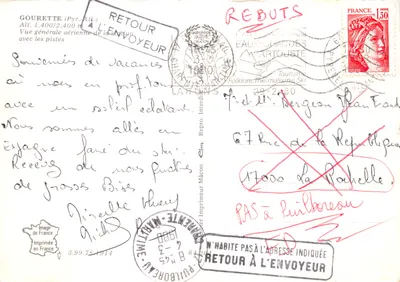 GOURETTE (Pyr.-Atl.)
Alt. 1.400/2.400 m
Vue générale aérienne de la
avec les pistes
RETOUR
À L'ENVOYEUR
REBUTS
1980
FRANCE
1,50
Souvenirs de vacances
où nous en profitons
avec un soleil éclatant.
Nous sommes allés en
Espagne faire du ski.
Recevez de nous quatre
de grosses Bises
Mireille
M. et Mme Bergeon Jean
67 Rue de la République
17000 La Rochelle
PAS à Puilboreau
Image
de France
Imprimée en
France
PUILBOREAU
CHARENTE-MARITIME
8 H45
4-3
1980
N'HABITE PAS À L'ADRESSE INDIQUÉE
RETOUR À L'ENVOYEUR